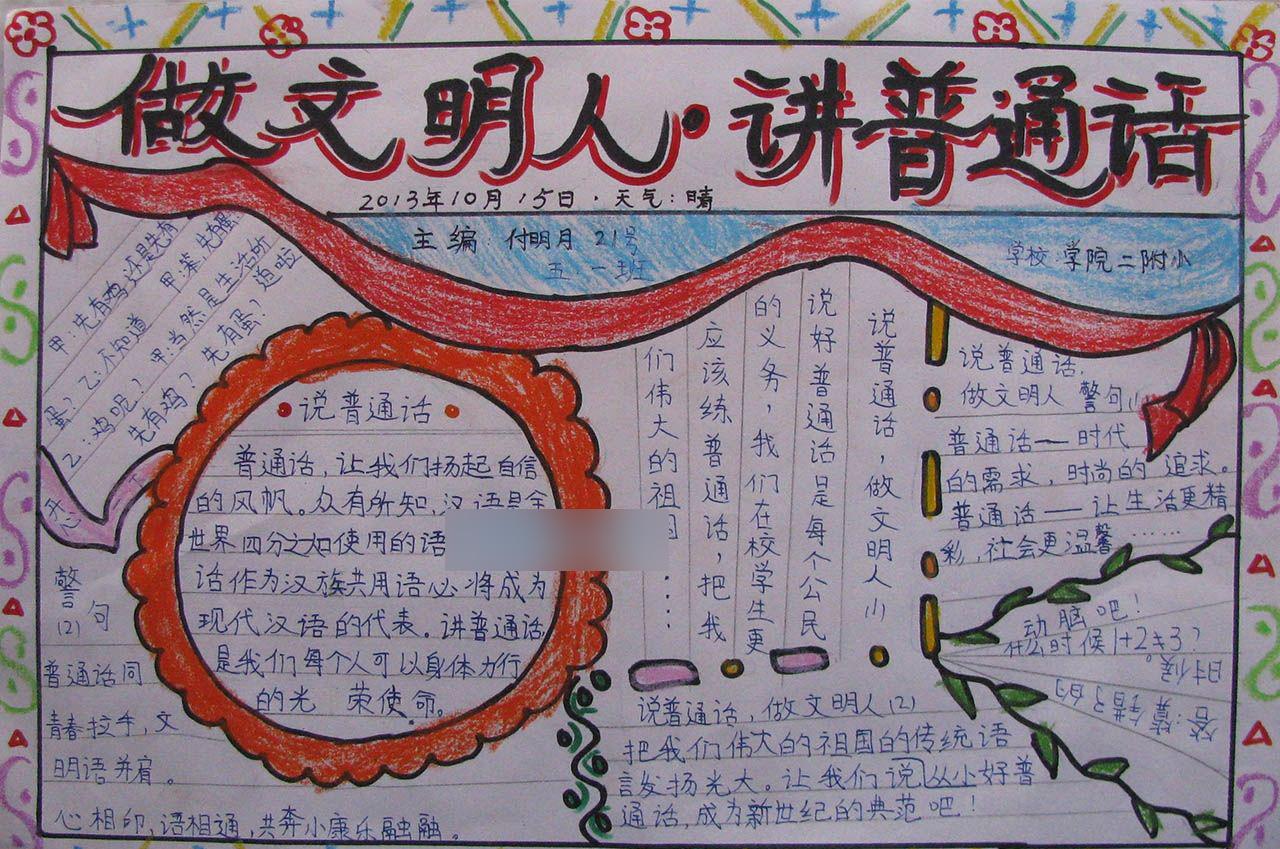 做文明人·讲普通话
2013年10月15日·天气:晴
主编:付明月 21号
五一班
学校:学院二附小
甲:先有鸡还是先有
蛋?
乙:不知道 甲:笨,先有蛋
乙:鸡呢? 甲:当然是生活所
先有鸡? 先有蛋?
迫啦
开心
说普通话
普通话,让我们扬起自信
的风帆。众有所知,汉语是全
世界四分之如使用的语
话作为汉族共用语心将成为
现代汉语的代表。讲普通话
是我们每个人可以身体力行
的光 荣使命。
说普通话,做文明人(1)
说好普通话是每个公民
的义务,我们在校学生更
应该练普通话,把我
们伟大的祖国……
说普通话,
做文明人 警句(1)
普通话一时代
的需求,时尚的 追求。
普通话一让生活更精
彩,社会更温馨……
动脑吧!
什么时候1+2≠3?
答:算错了的
时候。
警句
(2)
普通话同
青春拉手,文
明语并肩。
心相印,语相通,共奔小康乐融融。
说普通话,做文明人(2)
把我们伟大的祖国的传统语
言发扬光大。让我们说从小好普
通话,成为新世纪的典范吧!